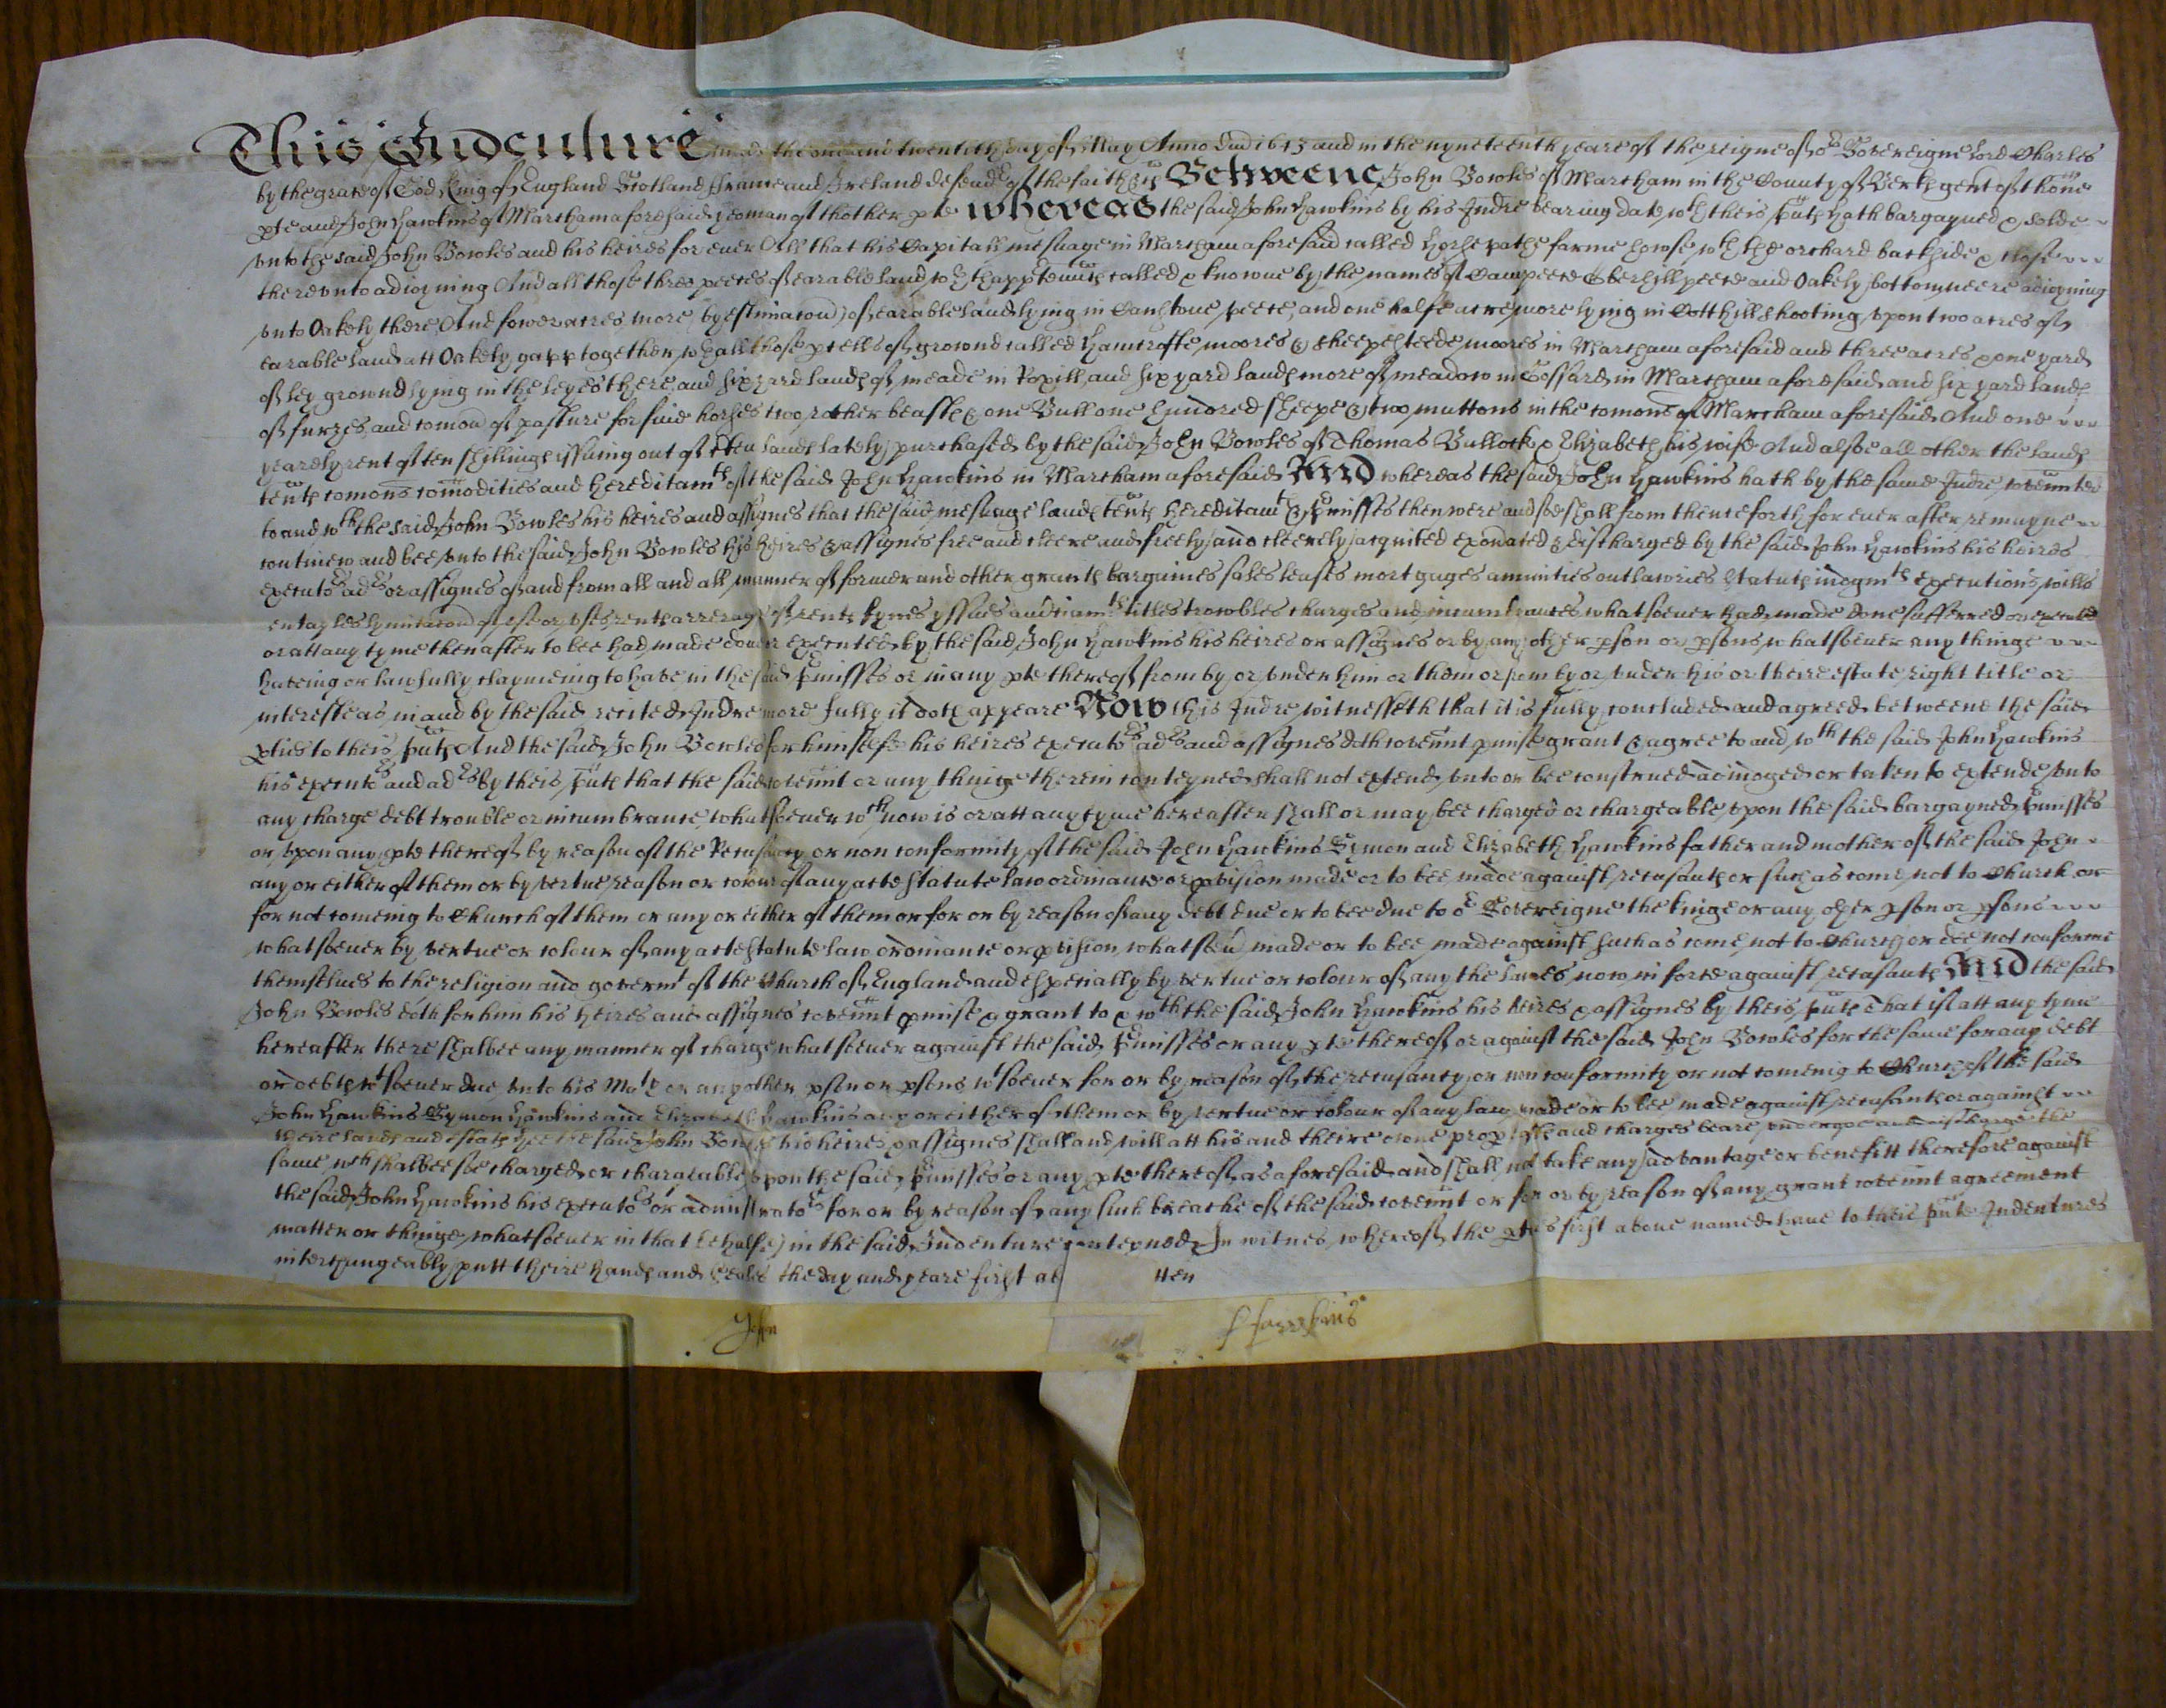 This Indenture made the one and twentith day of May Anno Dni 1643 and in the nyneteenth yeare of the reigne of or Sovereigne Lord Charles
by the grace of God King of England Scotland Fraunce and Ireland defendr of the faith &c Betweene John Bowles of Martham in the County of Berk gent of thone
pte and John Hawkins of Martham aforesaid yeoman of thother pte whereas the said John Hawkins by his Indre bearing date wth theis pnts hath bargayned & solde
vnto the said John Bowles and his heires for ever All that his Capitall messuage in Martham aforesaid called farme howse wth the orchard backside & close
therevnto adioyning And all those three peeces of earable land wth thapptennces called & knowne by the names of peece peece and Oakely bottom neere adioyning
vnto Oakely there And fower acres more (by estimacon) of earable land lying in peece, and one halfe acre more lying in shooting vpon two acres of
earable land att Oakely gapp together wth all those pcells of grownd called moores & moores in Martham aforesaid and three acres & one yard
of ley grownd lying in the leyes there and six yard lands of meade in and six yard lands more of meadow in in Martham aforesaid and six yard lands
of furzes and comon of pasture for five horses two rother beasts & one Bull one hundred sheepe & two muttons in the comons of Martham aforesaid And one
yearely rent of ten shillings issuing out of lands lately purchased by the said John Bowles of Thomas Bullock & Elizabeth his wife And alsoe all other the lands
tents comons comodities and hereditamts of the said John Hawkins in Martham aforesaid And whereas the said John Hawkins hath by the same Indre covennted
to and wth the said John Bowles his heires and assignes that the said messuage lands tents hereditamts & pmisses then were and soe shall from thenceforth for ever after remayne
continew and bee vnto the said John Bowles his heires & assignes free and cleere and freely and cleerely acquited exonated & discharged by the said John Hawkins his heires
executors adors or assignes of and from all and all manner of former and other grants bargaines sales leases mortgages annuities outlawries statuts iudgmts executions wills
entayles lymitacons of vse or vses rents arrerags of rents fynes yssues titles trowbles charges and incumbrances whatsoever had made done suffered or executed
or att any tyme then after to bee had made done or executed by the said John Hawkins his heires or assignes or by any other pson or psons whatsoever any thinge
haveing or lawfully claymeing to have in the said pmisses or in any pte thereof from by or vnder him or them or from by or vnder his or theire estate right title or
interest as in and by the said recited Indre more fully it doth appeare Now this Indre witnesseth that it is fully concluded and agreed betweene the said
pties to theis pnts And the said John Bowles for himselfe his heires executors adors and assignes doth covennt pmise grant & agree to and wth the said John Hawkins
his executors and adors by theis pnts that the said covennt or any thinge therein conteyned shall not extend vnto or bee construed adiudged or taken to extende vnto
any charge debt trouble or incumbrance whatsoever wch now is or att any tyme hereafter shall or may bee charged or chargeable vpon the said bargayned pmisses
or vpon any pte thereof by reason of the Recusancy or non conformity of the said John Hawkins Symon and Elizabeth Hawkins father and mother of the said John
any or either of them or by vertue reason or colour of any acte statute law ordinance or pvision made or to bee made against recusants or such as come not to Church or
for not comeing to Church of them or any or either of them or for or by reason of any debt due or to bee due to or Sovereigne the kinge or any other pson or psons
whatsoever by vertue or colour of any acte statute law ordinance or pvision whatsoevr made or to bee made against such as come not to Church or doe not conforme
themselves to the religion and govermt of the Church of England and especially by vertue or colour of any the lawes now in force against recusants And the said
John Bowles doth for him his heires and assignes covennt pmise & grant to & wth the said John Hawkins his heires & assignes by theis pnts That if att any tyme
hereafter there shalbee any manner of charge whatsoever against the said pmisses or any pte thereof or against the said John Bowles for the same for any debt
or debts wtsoever due vnto his Matie or any other pson or psons wtsoever for or by reason of the recusancy or non conformity or not comeing to Church of the said
John Hawkins Symon Hawkins and Elizabeth Hawkins any or either of them or by vertue or colour of any law made or to bee made against recusants or against
theire lands and estats hee the said John Bowles his heires & assignes shall and will att his and theire owne and charges beare vndergoe and discharge the
same wch shalbee soe charged or chargeable vpon the said pmisses or any pte thereof as aforesaid and shall not take any advantage or benefitt therefore against
the said John Hawkins his executors or administrators for or by reason of any such breache of the said covennt or for or by reason of any grant covennt agreement
matter or thinge whatsoever in that behalfe in the said Indenture conteyned In witnes whereof the pties first above named have to theis pnte Indentures
interchangeably putt theire hands and seales the day and yeare first ab tten
John Hawkins